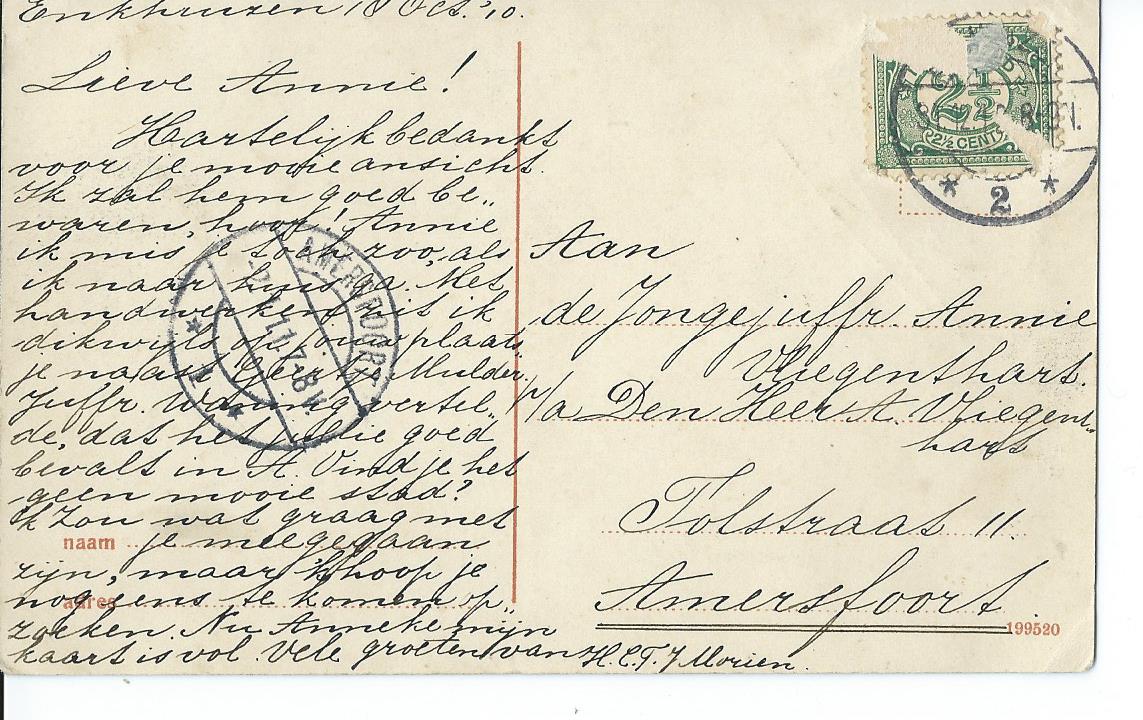 Enkhuizen 18 Oct. '10.
Lieve Annie!
Hartelijk bedankt
voor je mooie ansicht.
Ik zal hem goed be„
waren, hoor! Annie
ik mis je toch zoo, als
ik naar huis ga. Met
handwerken zit ik
dikwijls op jouw plaats
je naast Geertje Mulder.
Juffr. Waning vertel„
de, dat het jullie goed
bevalt in A. Vind je het
geen mooie stad?
Ik zou wat graag met
naam je meegegaan
zijn, maar 'k hoop je
adres nog eens te komen op„
zoeken. Nu Anneke mijn
kaart is vol. Vele groeten van H.C.T. J Morien.
2½
2½ CENT
2
AMERSFOORT
7-8V
1
Aan
de Jongejuffr. Annie
Vliegenthart.
p/a Den Heer A. Vliegent„
hart
Tolstraat 11.
Amersfoort.
199520